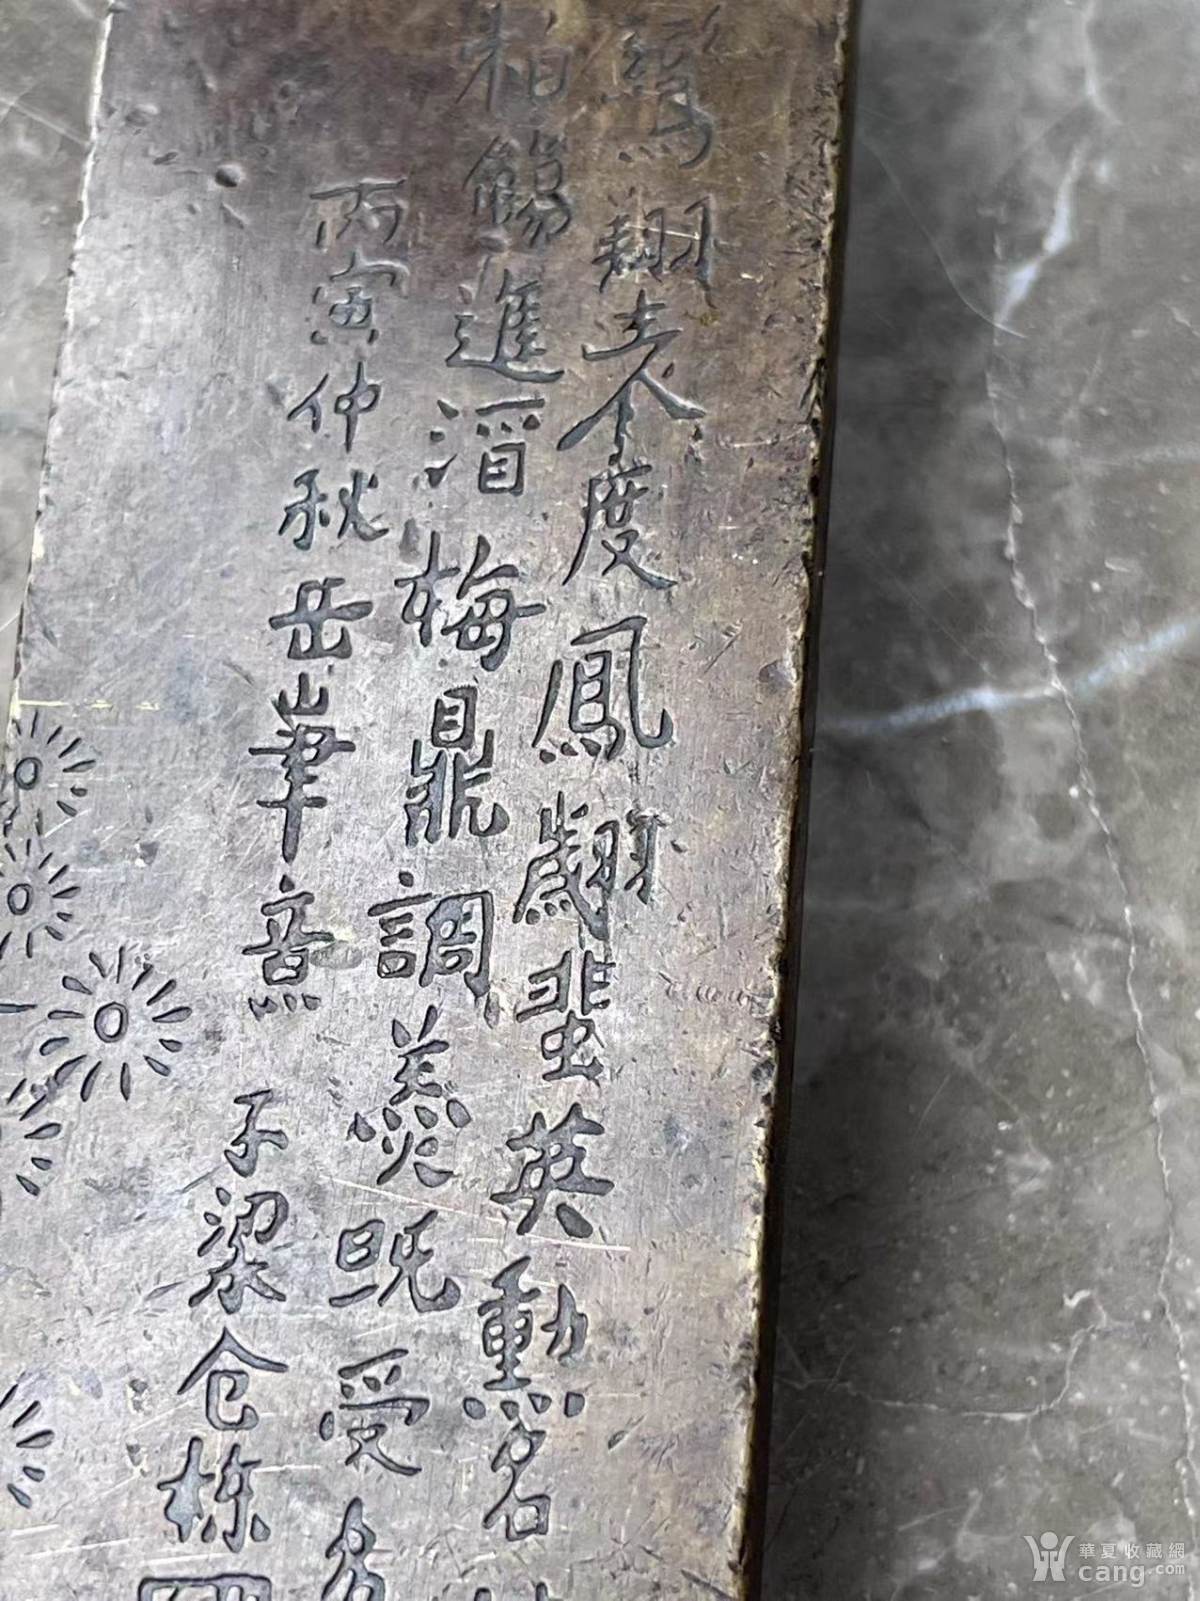 鸞翔去人度鳳翽蜚英勳名
柏觴進酒梅鼎調羹既受多
丙寅仲秋岳峯熹子梁仓栋
華夏收藏網
cang.com